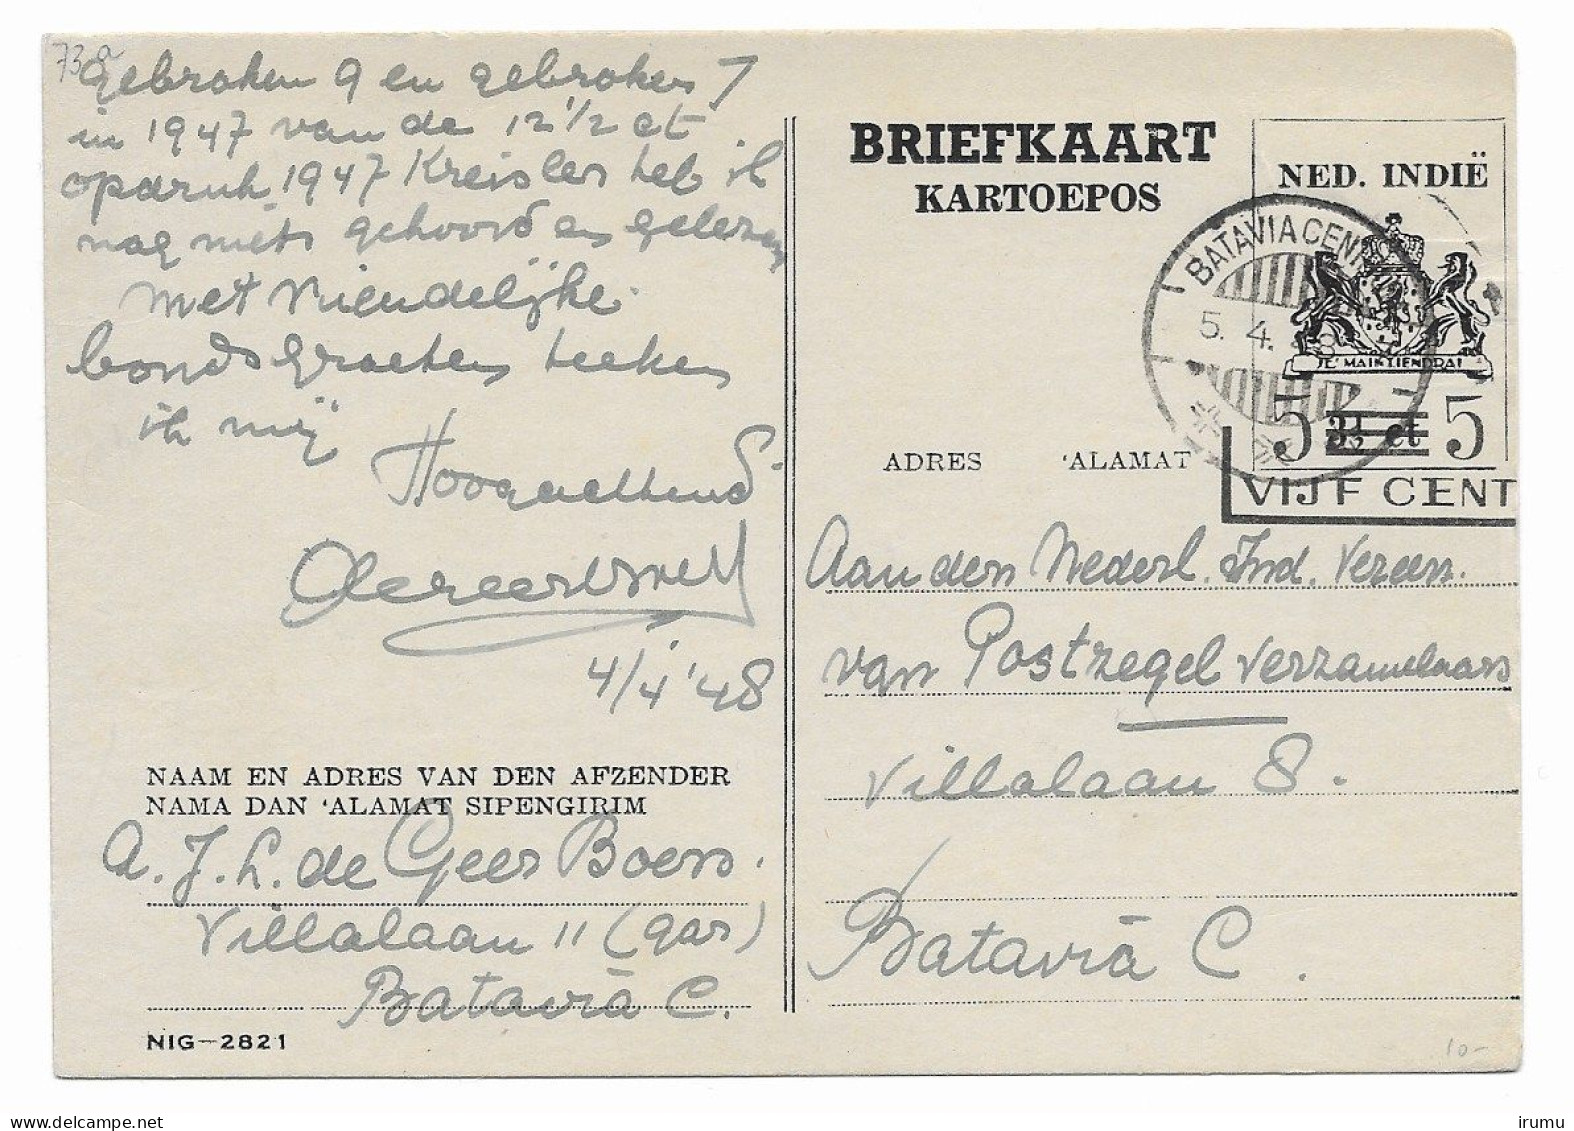 73a
gebroken 9 en gebroken 7
in 1947 van de 12 1/2 ct
opdruk 1947 Kreisler heb ik
nog niets gehoord en gelezen
Met vriendelijke
bondsgroeten teeken
ik mij
Hoogachtend
4/4 '48
NAAM EN ADRES VAN DEN AFZENDER
NAMA DAN 'ALAMAT SIPENGIRIM
A. J. L. de Geer Boers.
Villalaan 11 (gar)
Batavia C.
NIG-2821
BRIEFKAART
KARTOEPOS
NED. INDIË
BATAVIA CENT
5. 4. 48
JE MAINTIENDRAI
5 3½ ct 5
VIJF CENT
ADRES 'ALAMAT
Aan den Nederl. Ind. Vereen.
van Postzegel verzamelaars
Villalaan 8.
Batavia C.
10-
delcampe.net
irumu